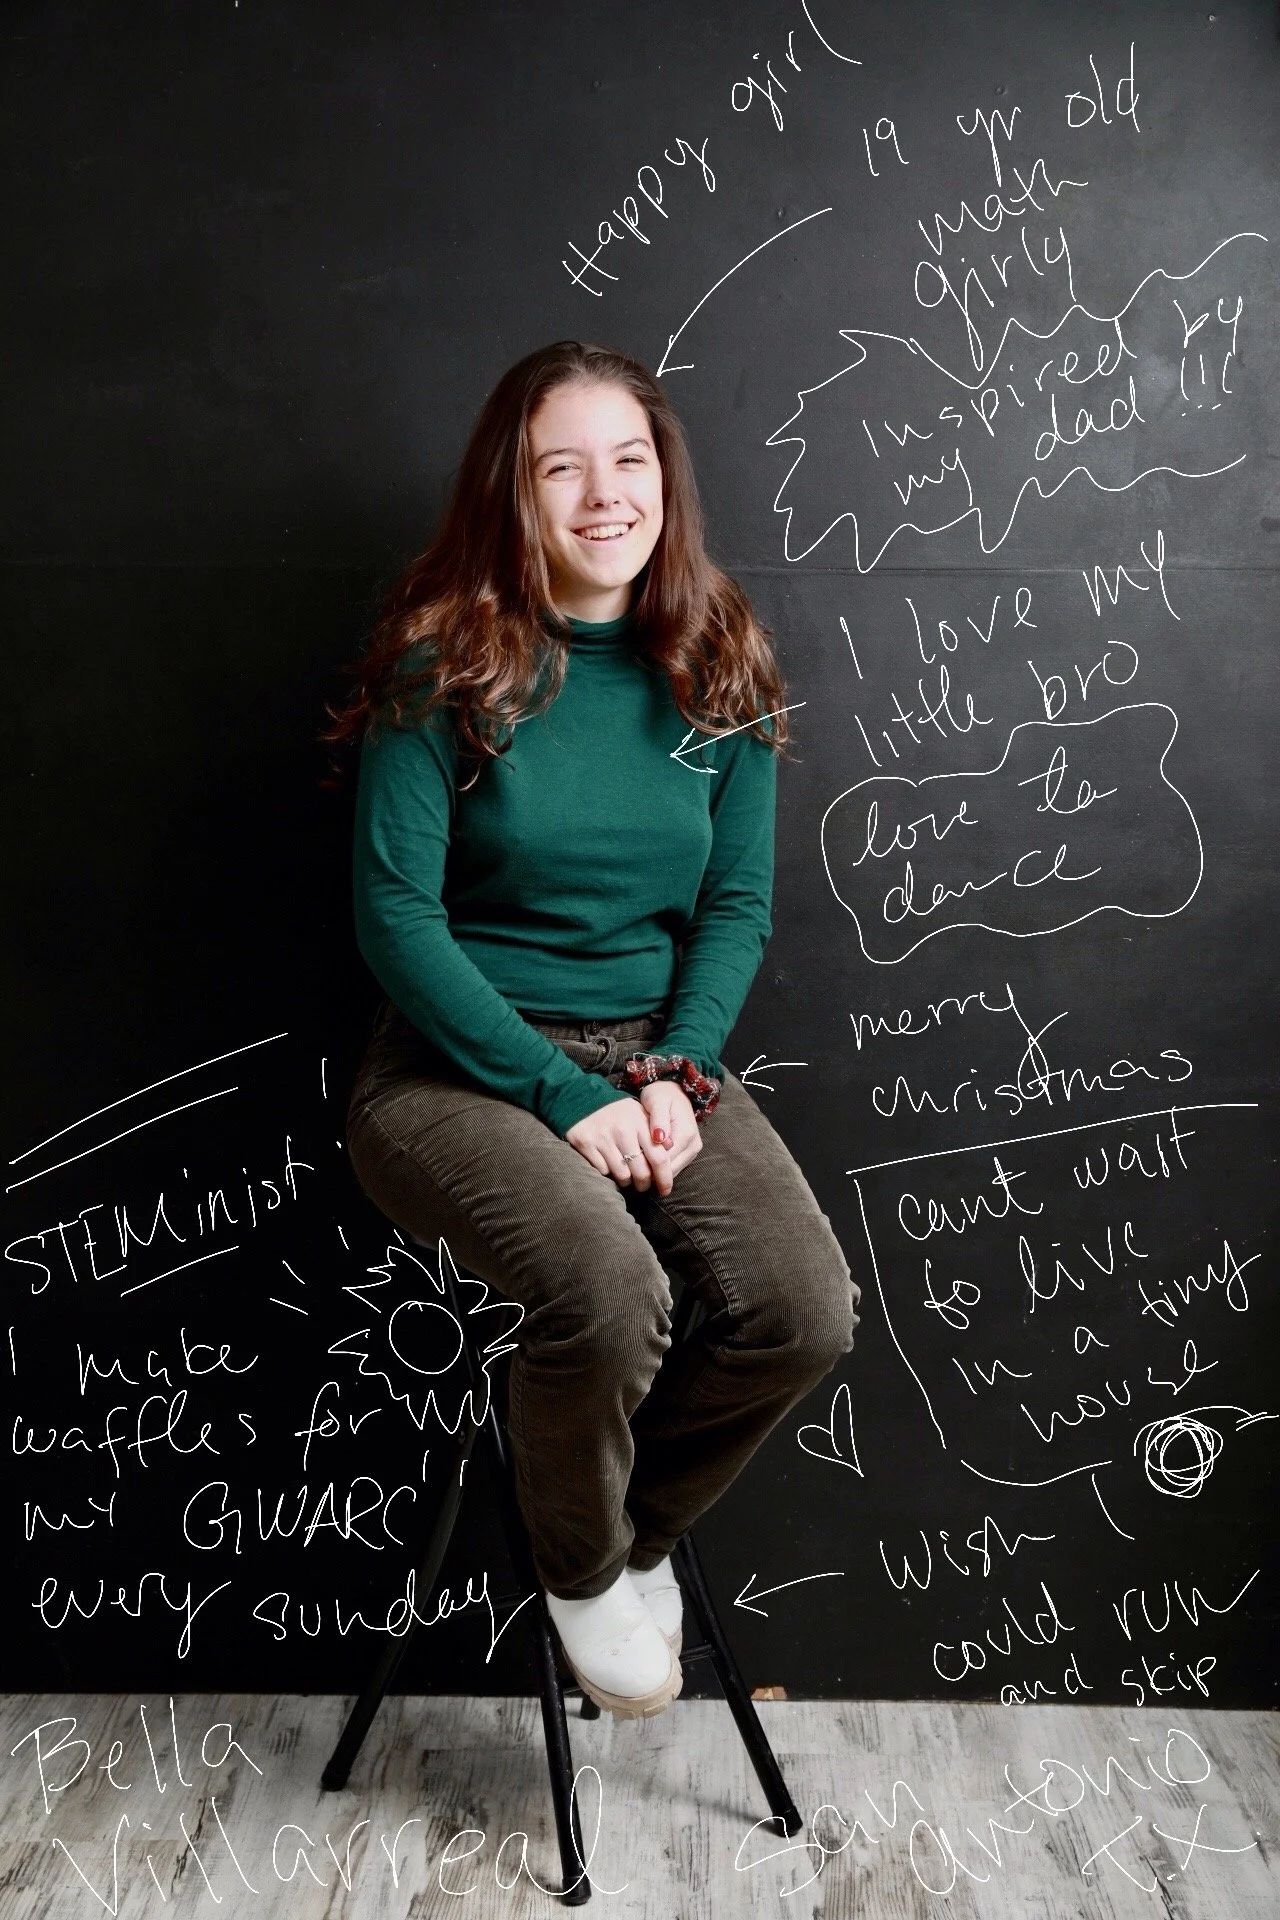 Happy girl
19 yr old
math
girly
inspired by
my dad !!!
I love my
little bro
love to
dance
merry
christmas
cant wait
to live
in a tiny
house
Wish I
could run
and skip
STEMinist!
I make
waffles for
my GWARC
every sunday
Bella
Villarreal
San
antonio
T.X